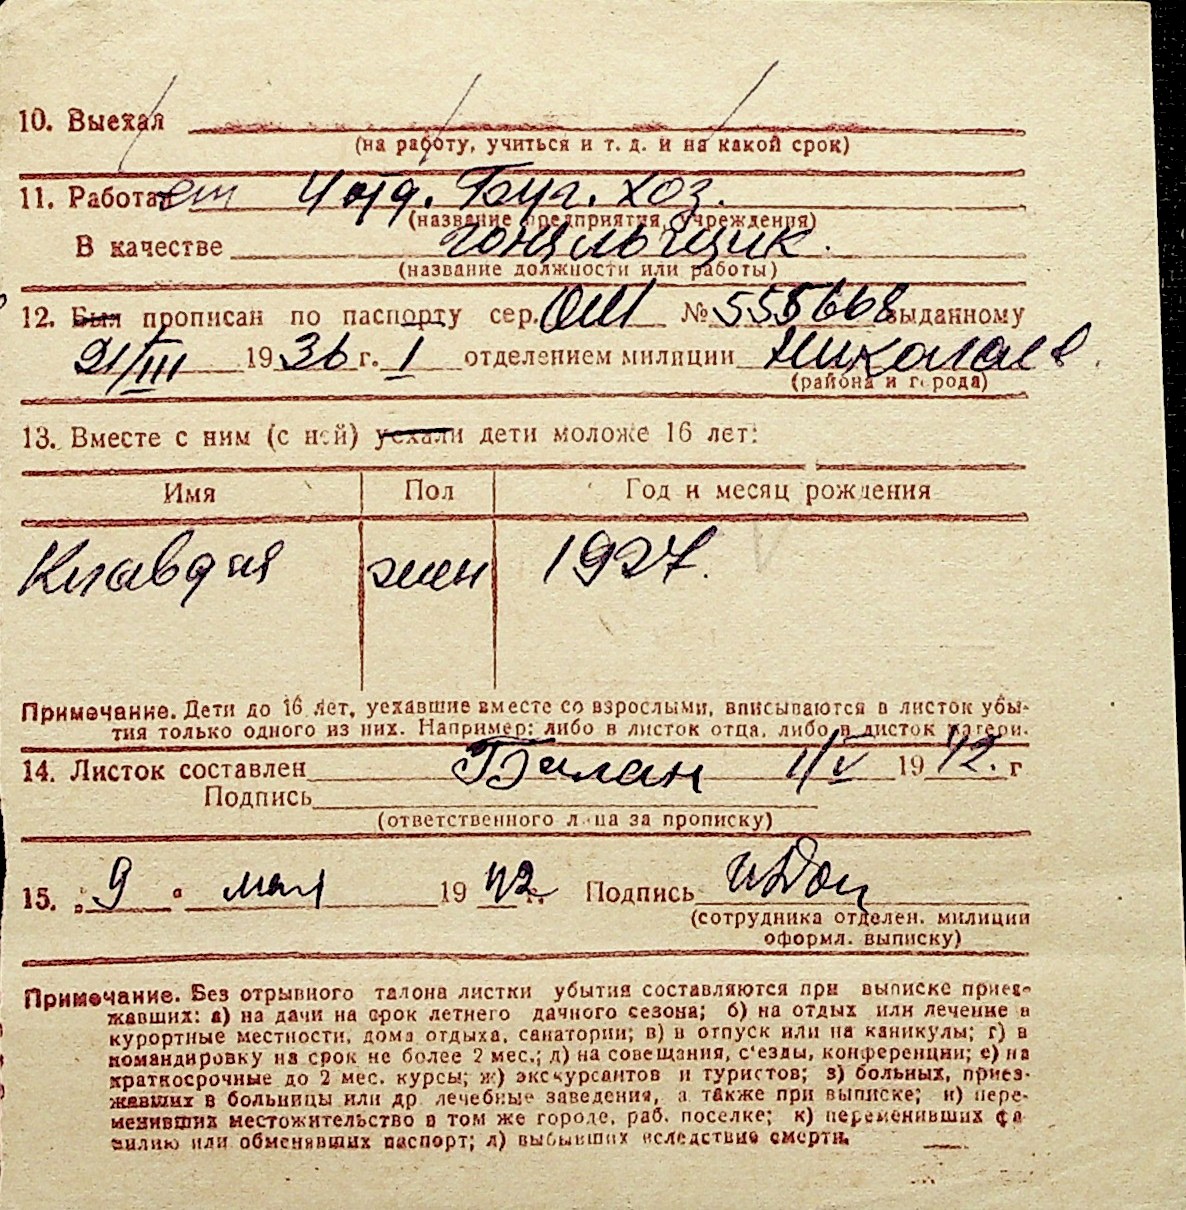 10. Выехал
(на работу, учиться и т. д. и на какой срок)
11. Работает 4 отд. Буг. хоз.
(название предприятия, учреждения)
В качестве
(название должности или работы)
12. Был прописан по паспорту сер. № 555668 выданному
21/III 1936 г. I отделением милиции Николаев.
(района и города)
13. Вместе с ним (с ней) уехали дети моложе 16 лет:
Имя Пол Год и месяц рождения
Клавдия жен 1927.
Примечание. Дети до 16 лет, уехавшие вместе со взрослыми, вписываются в листок убы-
тия только одного из них. Например: либо в листок отца, либо в листок матери.
14. Листок составлен Билан 1/V 1942. г
Подпись
(ответственного лица за прописку)
15. „9" мая 1942 г. Подпись
(сотрудника отделен. милиции
оформл. выписку)
Примечание. Без отрывного талона листки убытия составляются при выписке приез-
жавших: а) на дачи на срок летнего дачного сезона; б) на отдых или лечение в
курортные местности, дома отдыха, санатории; в) в отпуск или на каникулы; г) в
командировку на срок не более 2 мес.; д) на совещания, с'езды, конференции; е) на
краткосрочные до 2 мес. курсы; ж) экскурсантов и туристов; з) больных, приез-
жавших в больницы или др. лечебные заведения, а также при выписке; и) пере-
менивших местожительство в том же городе, раб. поселке; к) переменивших фа
милию или обменявших паспорт; л) выбывших вследствие смерти.